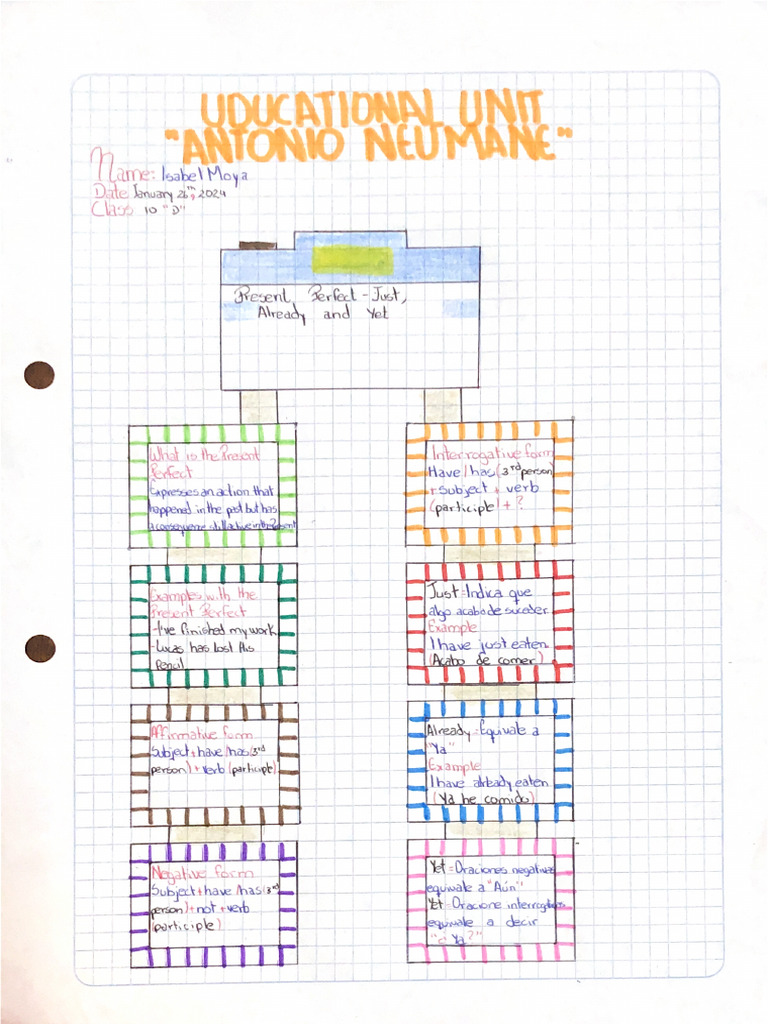 UDUCATIONAL UNIT
"ANTONIO NEUMANE"
Name: Isabel Moya
Date January 26th, 2024
Class 10 "D"
Present Perfect - Just,
Already and Yet
What is the Present
Perfect
Expresses an action that
happened in the past but has
a consequence still active in the Present
Examples with the
Present Perfect
-I've finished my work
-Lucas has lost his
pencil
Affirmative form
Subject + have/has (3rd
person) + verb (participle)
Negative form
Subject + have/has (3rd
person) + not + verb
(participle)
Interrogative form
Have/has (3rd person)
+ subject + verb
(participle + ?
Just = Indica que
algo acaba de suceder
Example
I have just eaten
(Acabo de comer)
Already = Equivale a
"Ya"
Example
I have already eaten
(Ya he comido)
Yet = Oraciones negativas
equivale a "Aún"
Yet = Oracione interrogativas
equivale a decir
"¿Ya?"